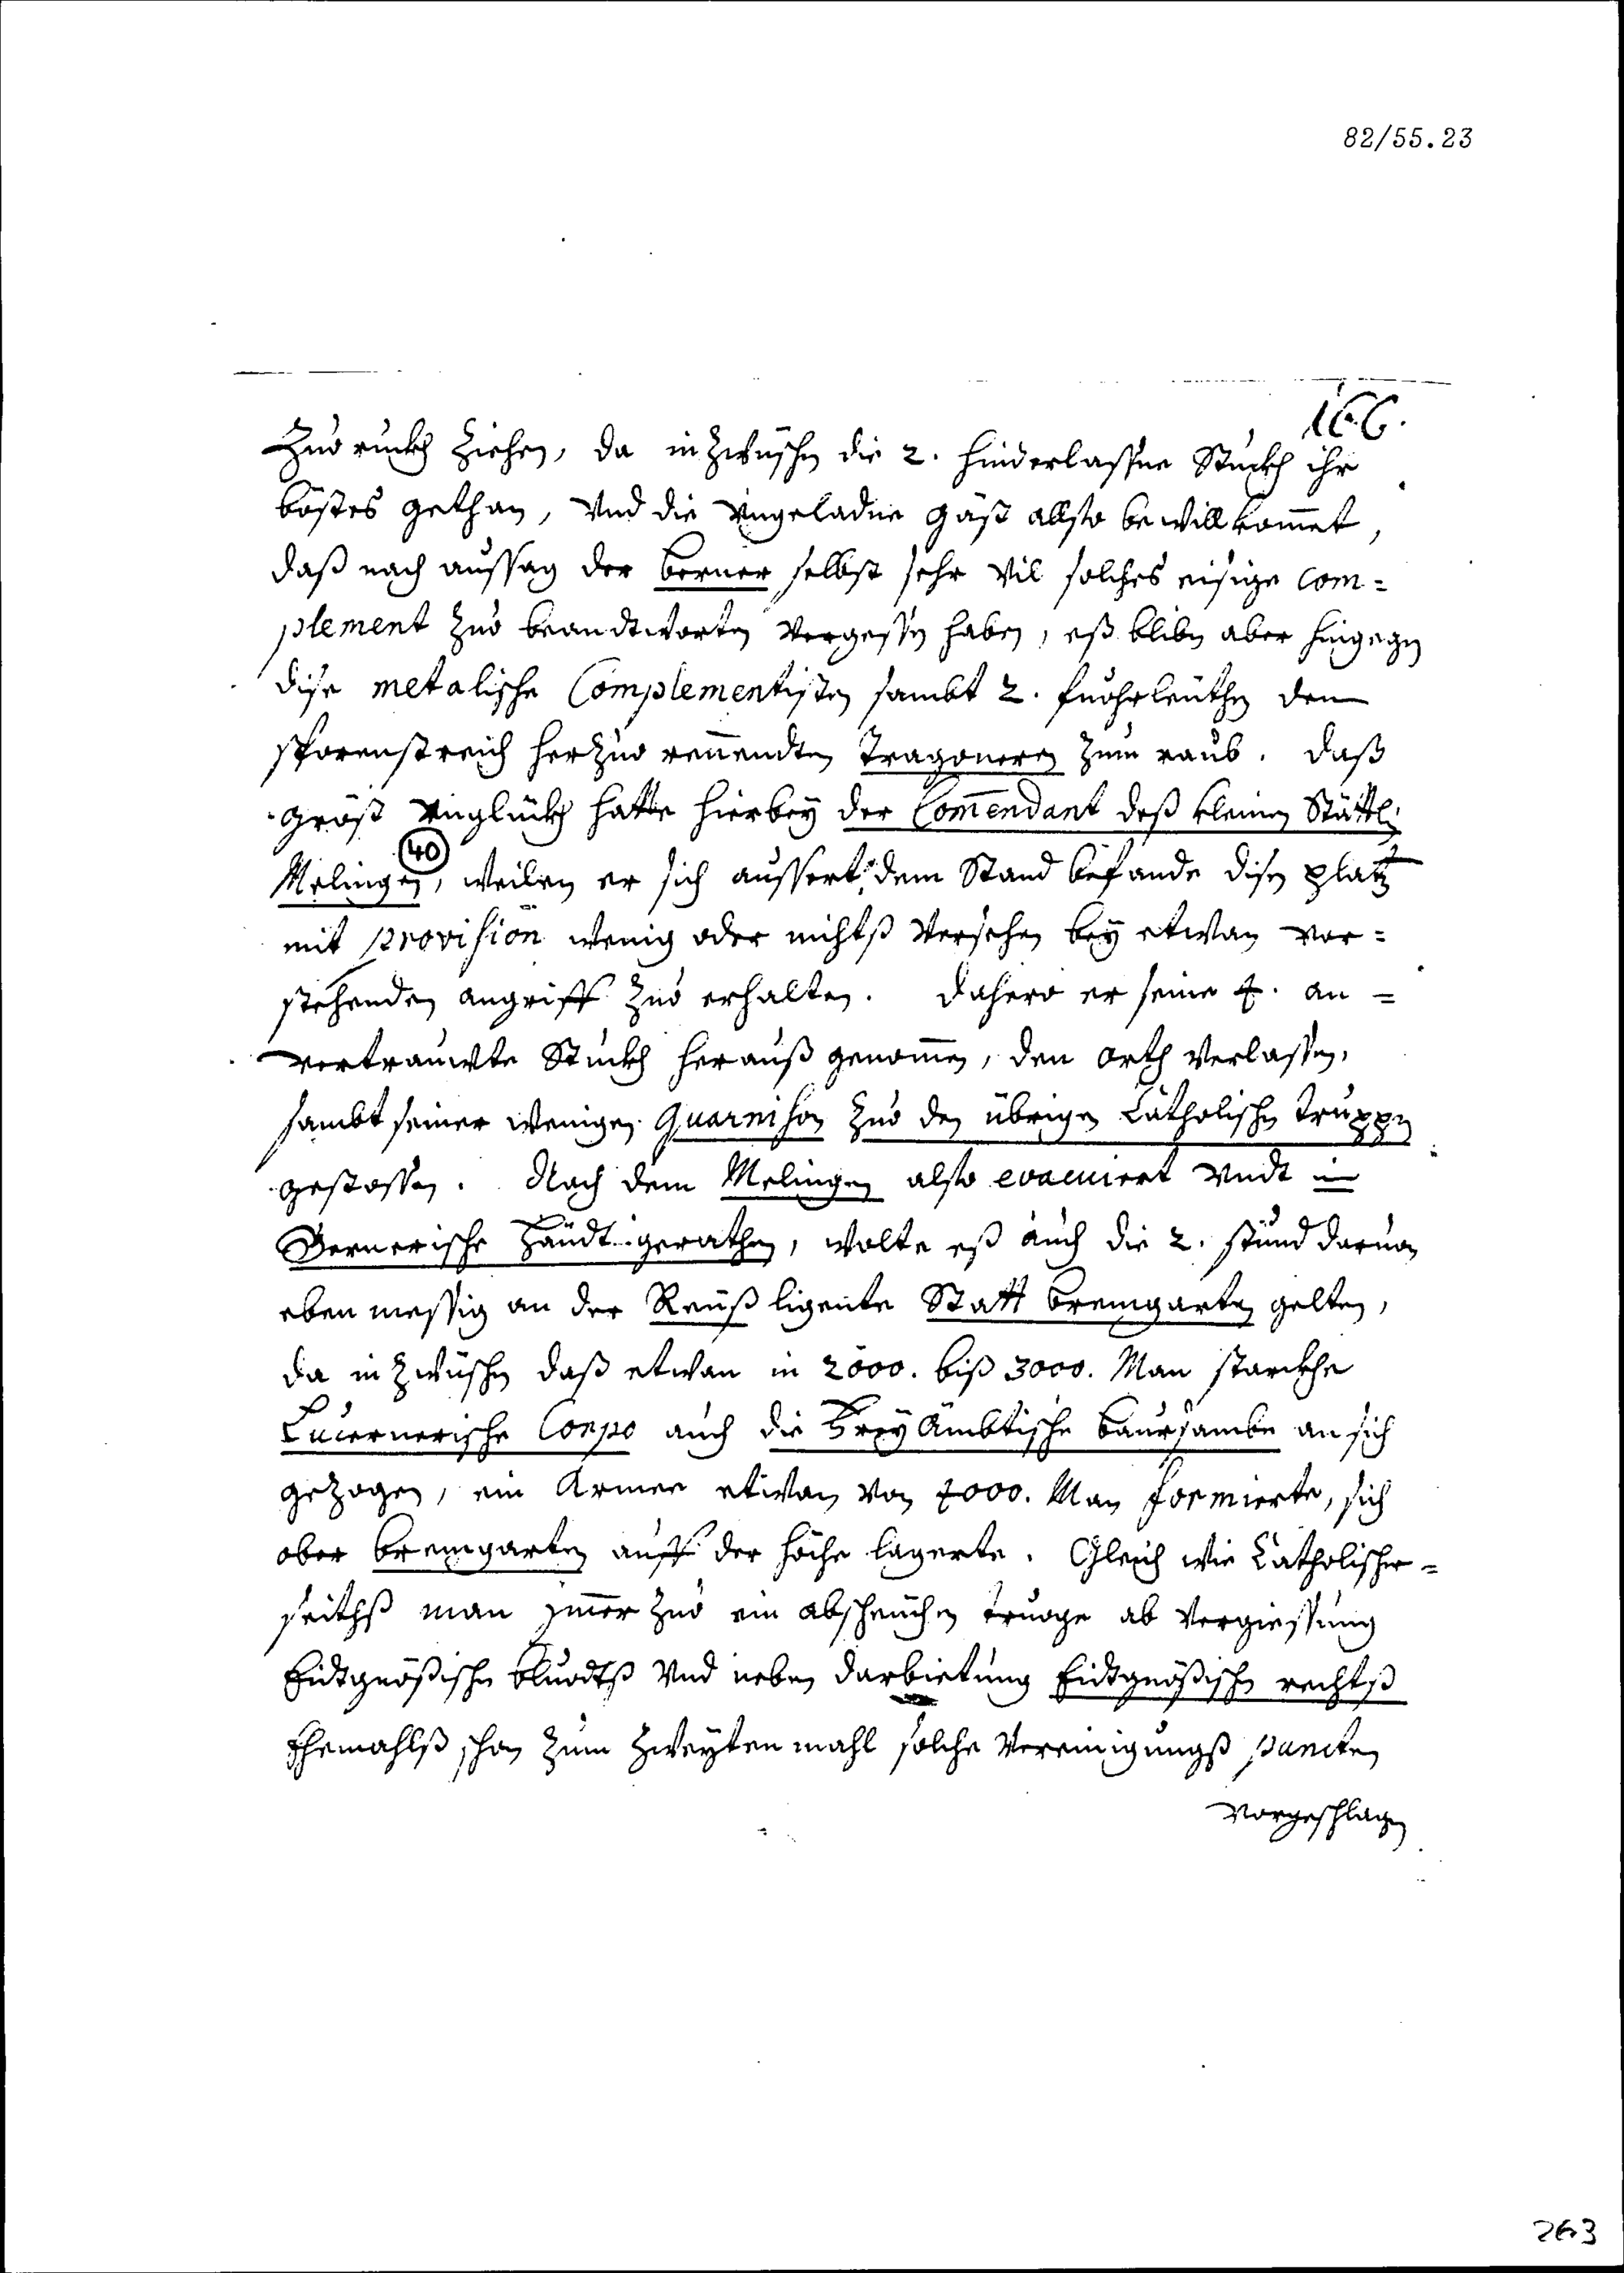 82/55.23
166.
Zuo ruckh ziehen, da in zwüschen die 2. hinderlaßne Stuckh ihr
böstes gethan, Vnd die Vngeladne gäst allso bewillkommet,
daß nach aussag der berner selbst sehr Vil solches eisige Com=
plement zuo beandtworten Vergessen haben, eß bliben aber hingegen
dise metalische Complementisten sambt 2. fuohrleüthen den
sporenstreich herzuo rennendten Tragoneren zum raub. Daß
gröst Vnglückh hatte hierbey der Commendant deß kleinen Stättli
40
Melingen, weilen er sich aussert dem Stand befande disen platz
mit provision wenig oder nichtß Versehen bey etwan vor=
stehenden angriff zuo erhalten. Dahero er seine 4. an=
vertrauwte Stuckh herauß genommen, den orth Verlassen,
sambt seiner wenigen Quarnison zuo den übrigen Catholischen Truppen
gestossen. Nach dem Melingen also evacuiert Vndt in
Bernerische Händt gerathen, wolte eß auch die 2. stund daruon
eben messig an der Reüß ligente Statt bremgarten gelten,
da in zwüschen daß etwan in 2000. biß 3000. Man starckhe
Lucernerische Corpo auch die Frey Ämbtische baursambe an sich
gezogen, ein Armee etwan von 4000. Man formierte, sich
ober bremgarten auff der höche lagerte. Gleich wie Catholischer=
seithß man jmmer zuo ein abscheüchen truoge ab Vergiessung
Eidtgnößischen bluodtß Vnd neben darbietung Eidtgnößischen rechtß
Ehemahlß schon zum zweyten mahl solche Vereinigungß puncten
vorgeschlagen
263